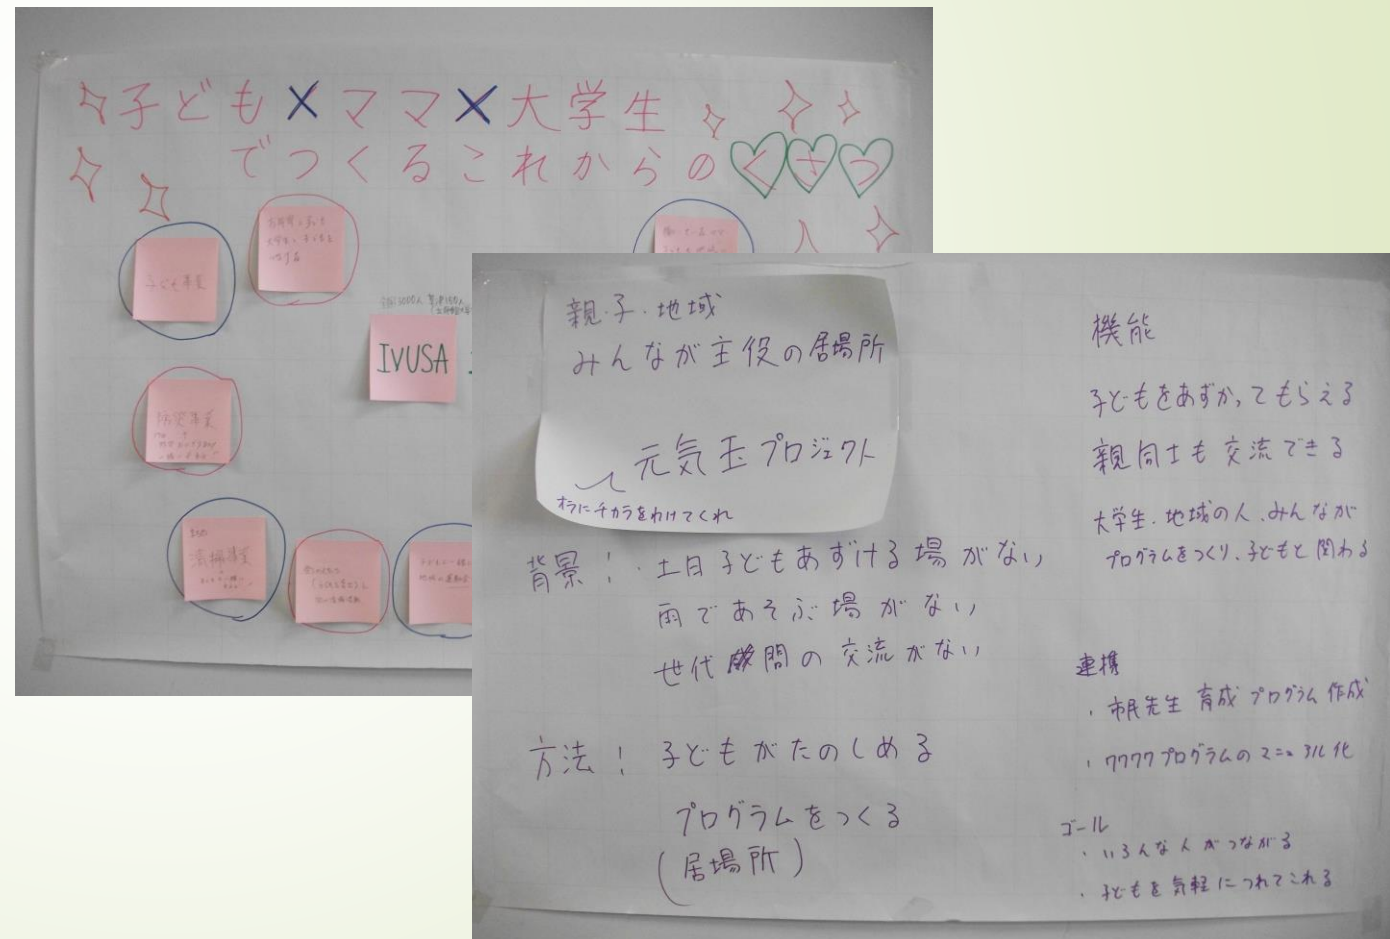 子ども×ママ×大学生
でつくるこれからのくさつ
子ども事業
大学生と子どもを
IVUSA
防災事業
清掃事業
親・子・地域
みんなが主役の居場所
元気玉プロジェクト
オラにチカラをわけてくれ
背景！・土日子どもあずける場がない
雨であそぶ場がない
世代間の交流がない
方法！子どもがたのしめる
プログラムをつくる
(居場所)
機能
子どもをあずかってもらえる
親同士も交流できる
大学生・地域の人、みんなが
プログラムをつくり、子どもと関わる
連携
・市民先生育成プログラム作成
・ワクワクプログラムのマニュアル化
ゴール
・いろんな人がつながる
・子どもを気軽につれてこれる